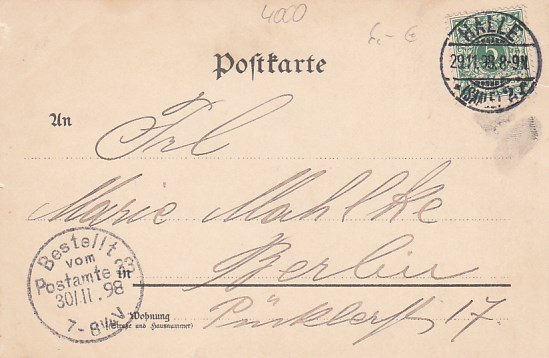 4000
6,- €
HALLE
5
29.11.98.8-9N.
Postkarte
An
Frl
Marie Mahlke
in Berlin
Bestellt
vom
Postamte
30/11.98
7-8¼V
Wohnung
(Straße und Hausnummer)
Pücklerstr 17.